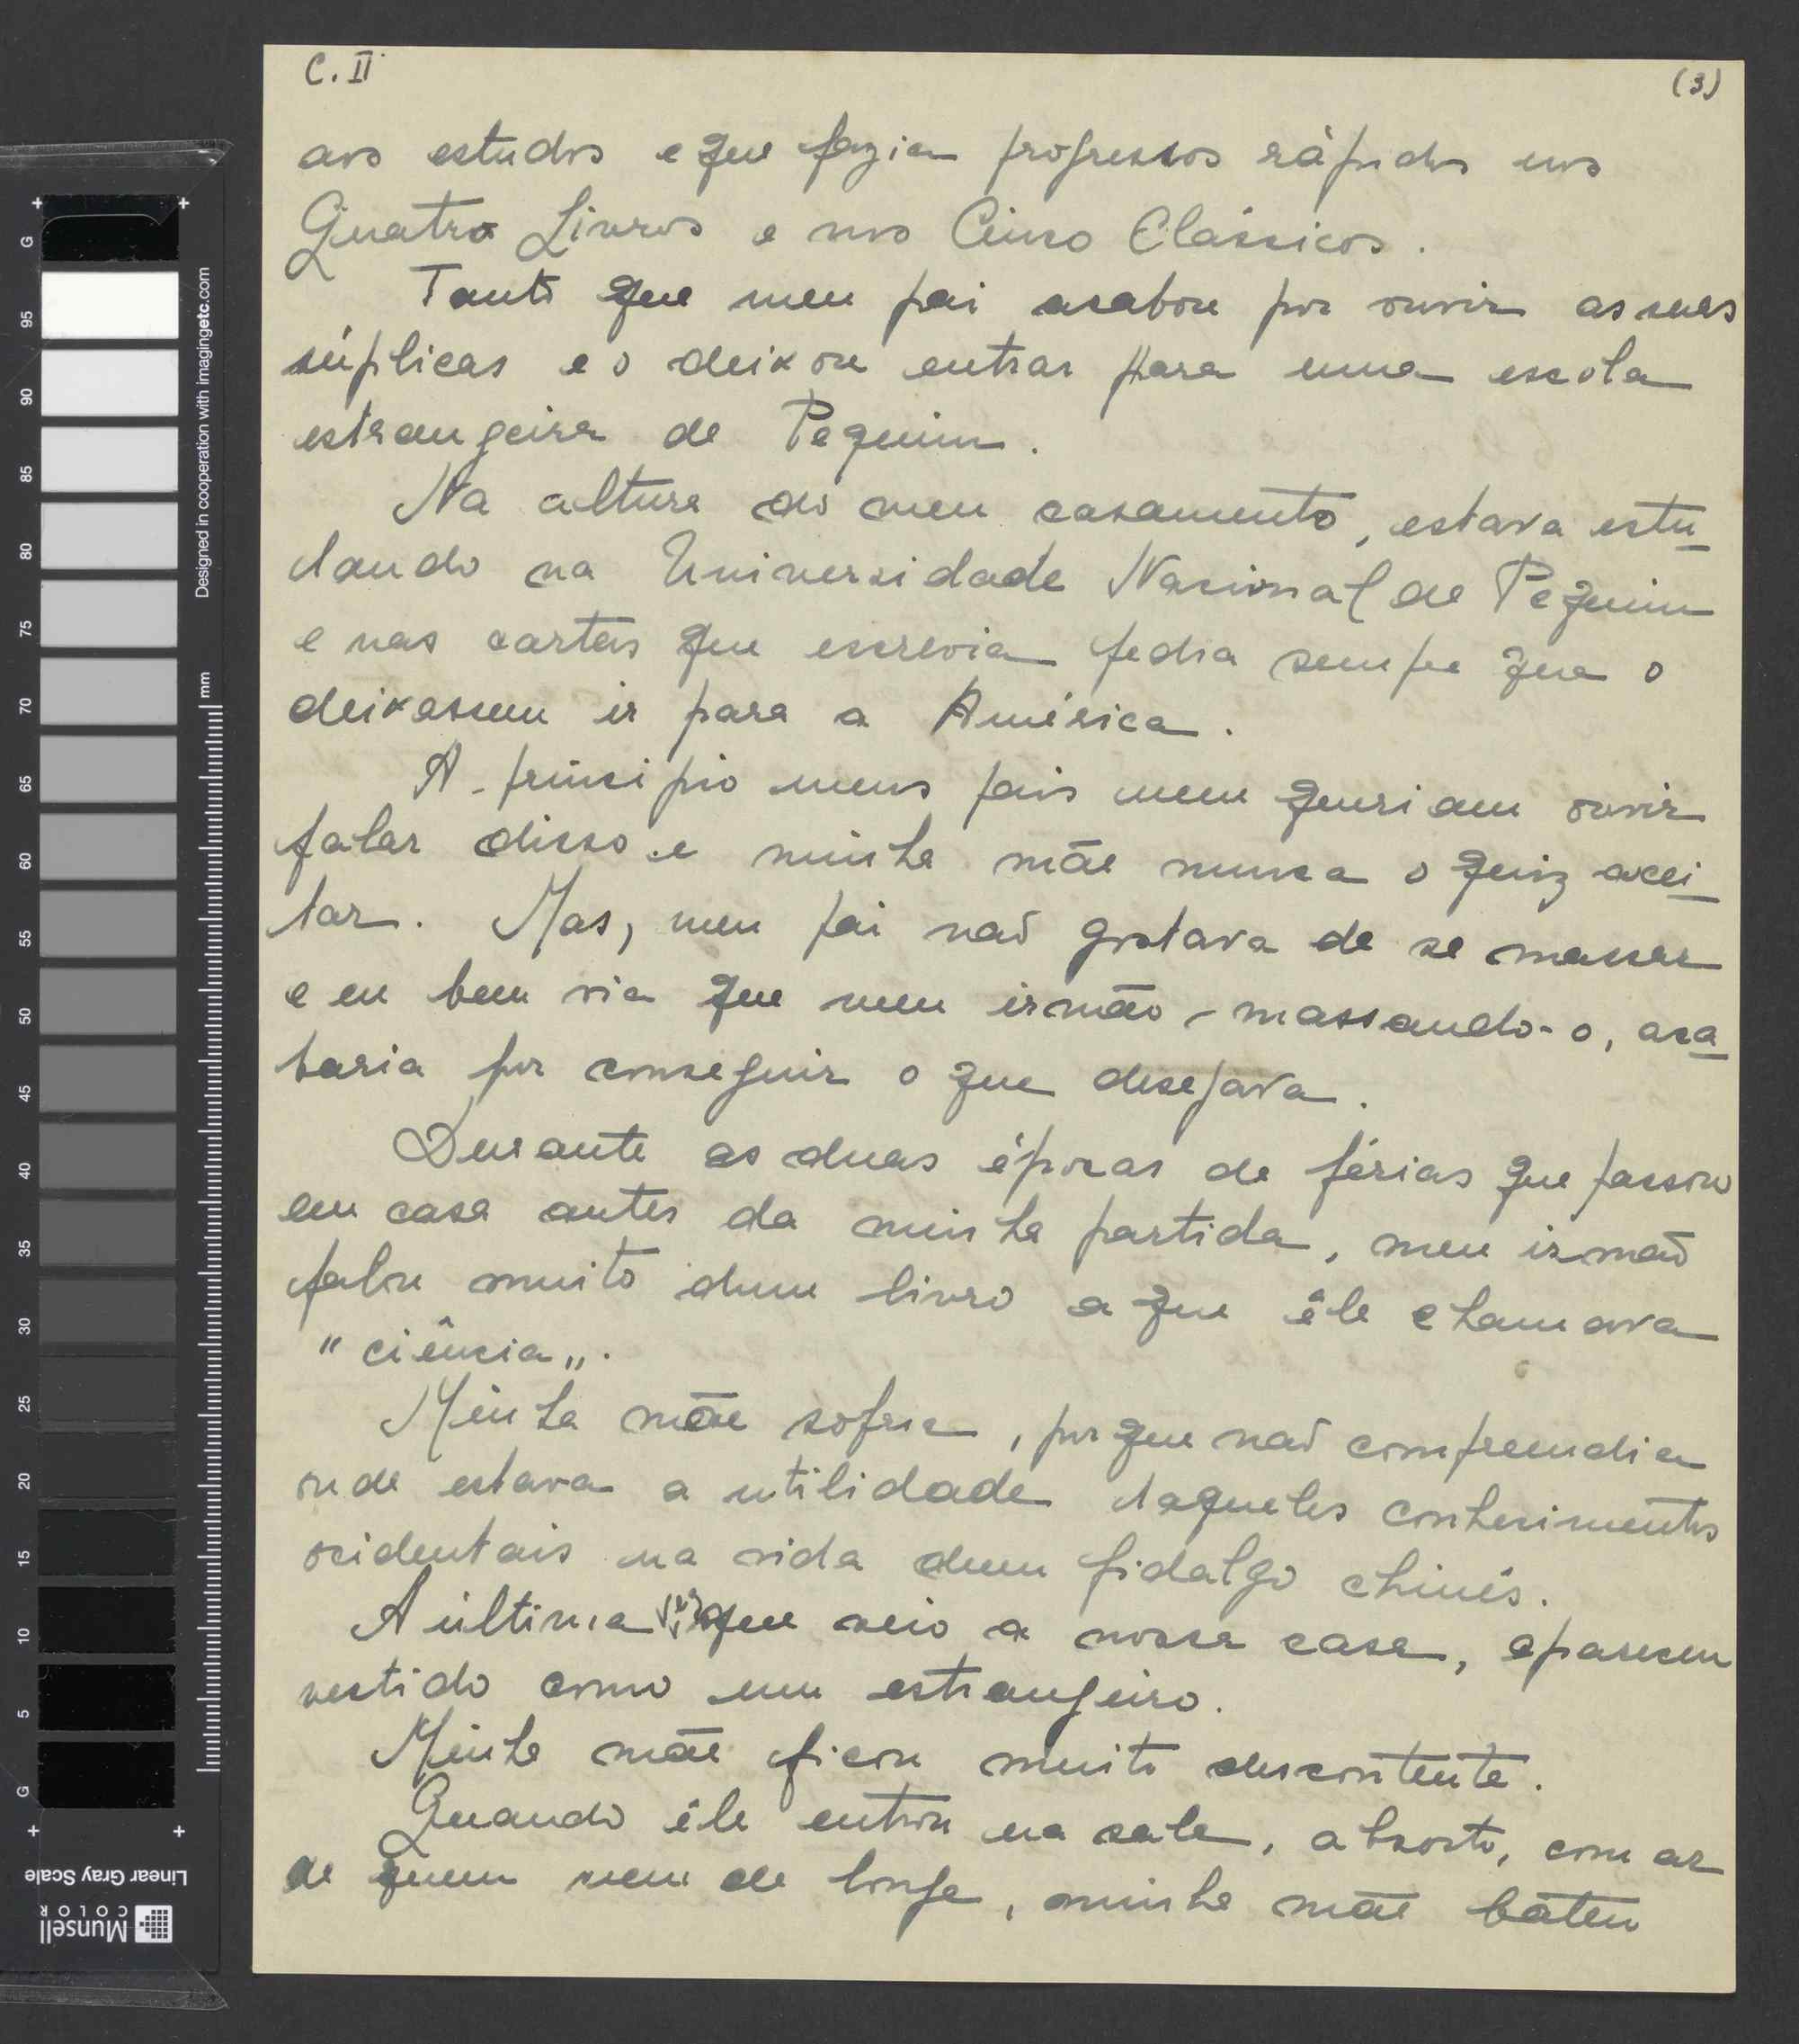 C. II
(3)
aos estudos e que fazia progressos rápidos nos
Quatro Livros e nos Cinco Clássicos.
Tanto que meu pai acabou por ouvir as suas
súplicas e o deixou entrar para uma escola
estrangeira de Pequim.
Na altura do meu casamento, estava estu-
dando na Universidade Nacional de Pequim
e nas cartas que escrevia pedia sempre que o
deixassem ir para a América.
A princípio meus pais nem queriam ouvir
falar disso e minha mãe nunca o quiz acei-
tar. Mas, meu pai não gostava de se massar
e eu bem via que meu irmão, massando-o, aca-
baria por conseguir o que desejava.
Durante as duas épocas de férias que passou
em casa antes da minha partida, meu irmão
falou muito dum livro a que êle chamava
"ciência".
Minha mãe sofria, porque não compreendia
onde estava a utilidade daqueles conhecimentos
ocidentais na vida dum fidalgo chinês.
A última vez que veio a nossa casa, apareceu
vestido como um estrangeiro.
Minha mãe ficou muito descontente.
Quando êle entrou na sala, absorto, com ar
de quem vem de longe, minha mãe bateu
Designed in cooperation with imagingetc.com
mm
G
95
90
85
80
75
70
65
60
55
50
45
40
35
30
25
20
15
10
5
G
Linear Gray Scale
Munsell
COLOR